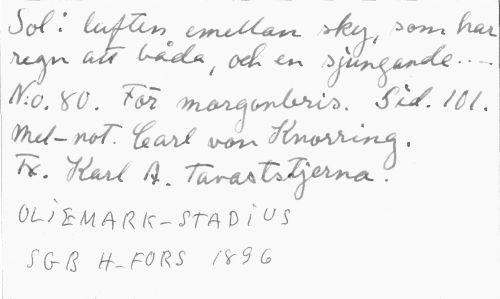 Sol i luften emellan sky, som har
regn att båda, och en sjungande...-
N:o. 80. För morgonbris. Sid. 101.
Mel-not. Carl von Knorring.
Tx. Karl A. Tavaststjerna.
OLiEMARK-STADiUS
SGB H-FORS 1896